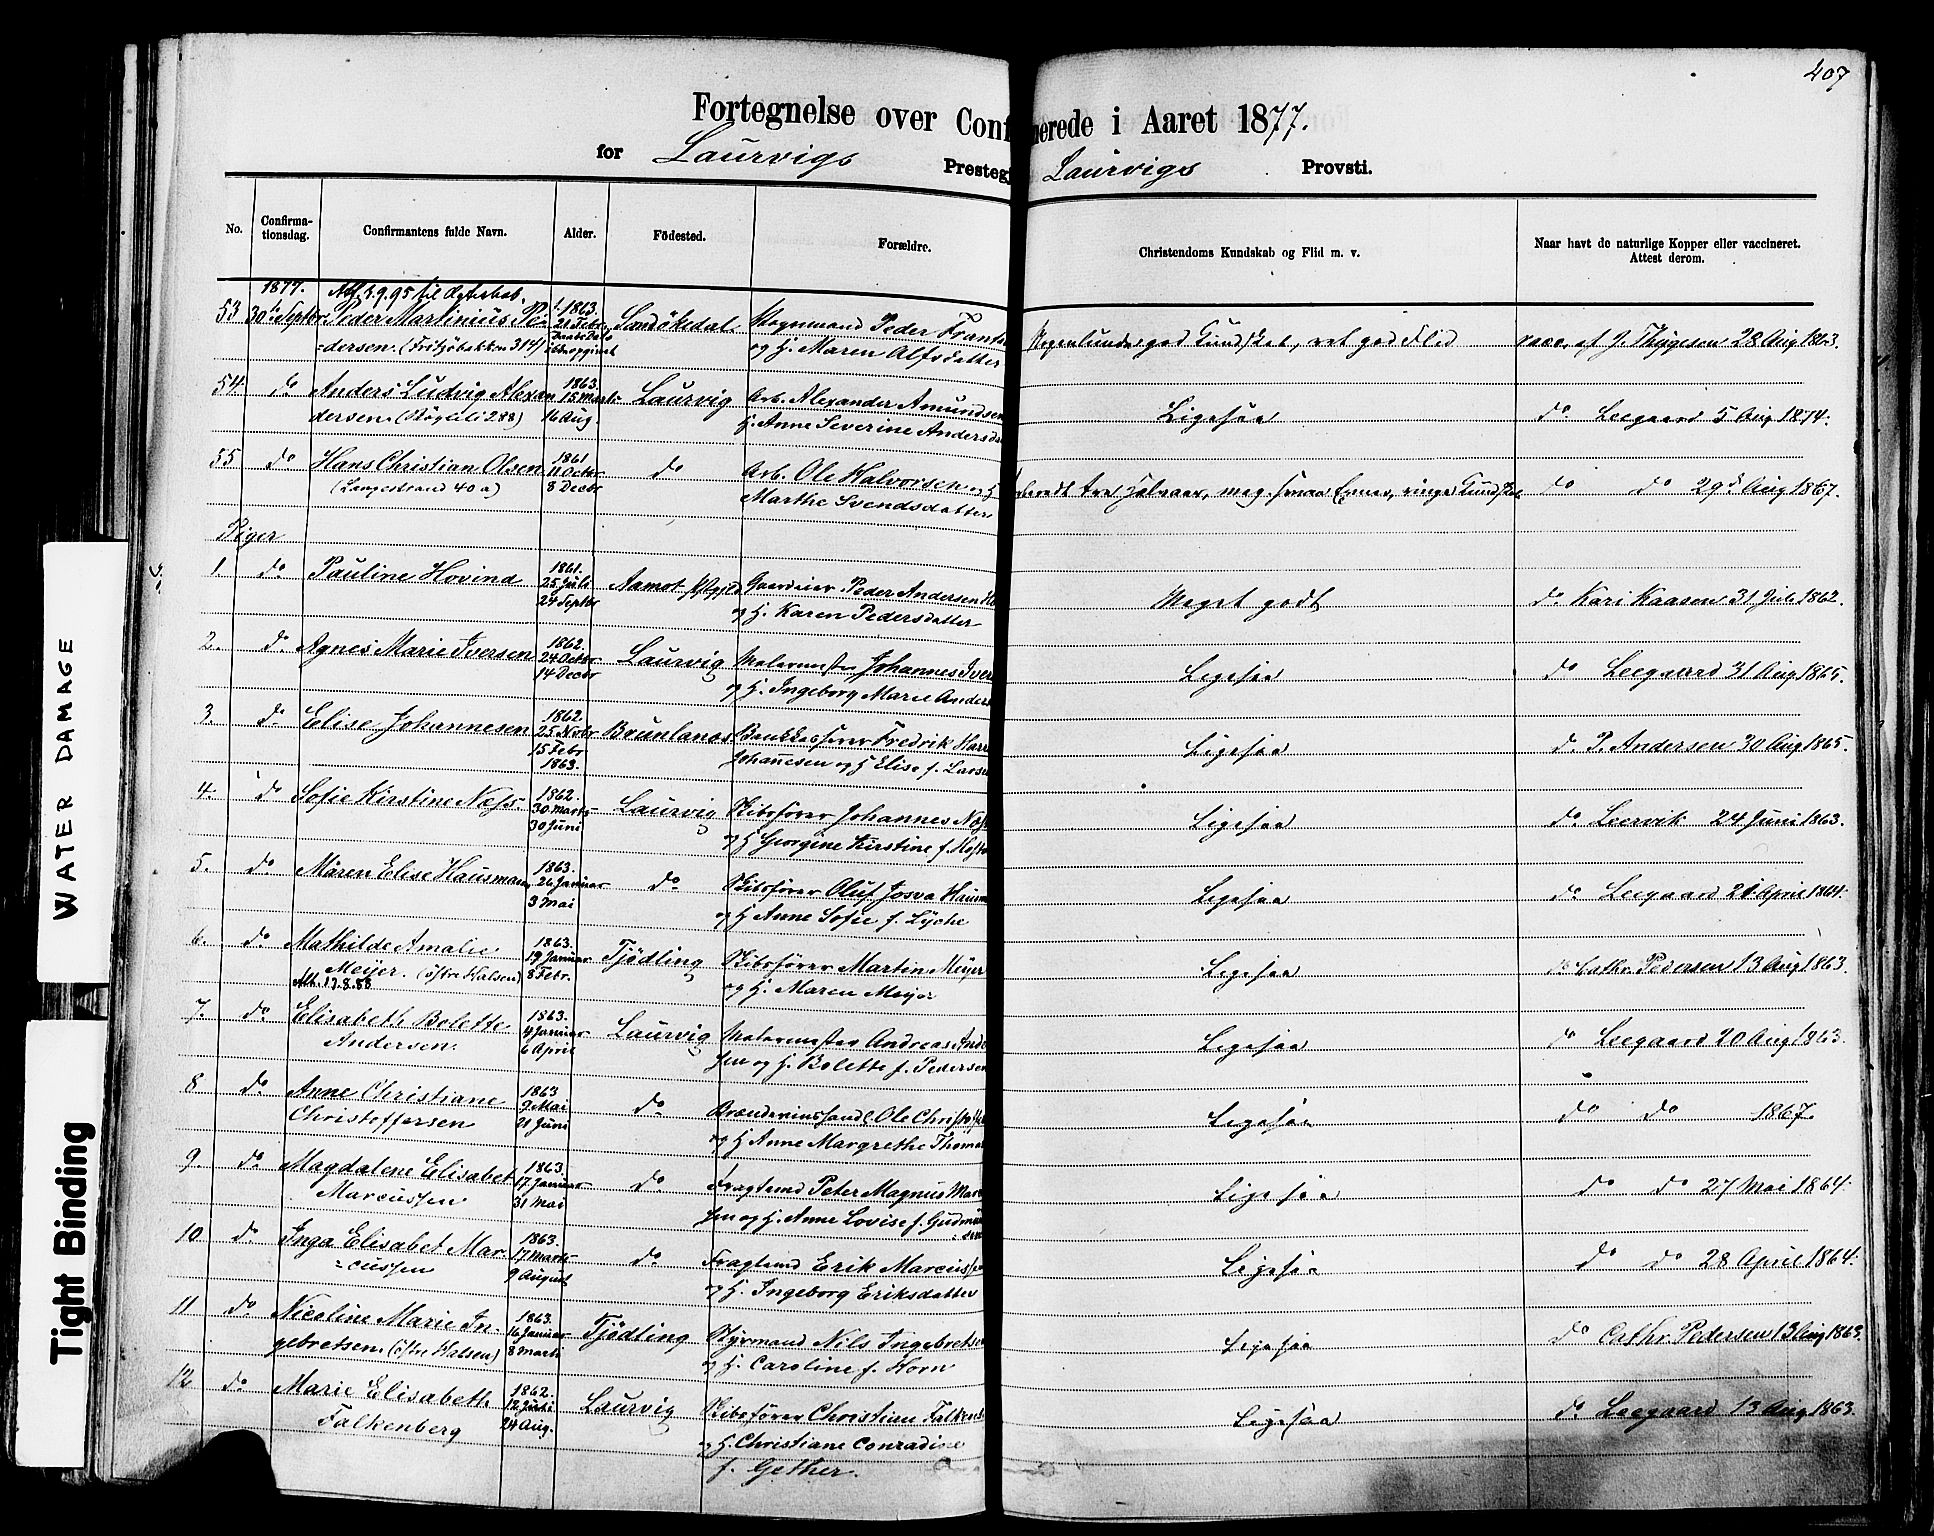 407
Fortegnelse over Conf nerede i Aaret 1877.
for Laurvigs Prestegj Laurvigs Provsti.
No. Confirma-tionsdag. Confirmantens fulde Navn. Alder. Födested. Forældre. Christendoms Kundskab og Flid m. v. Naar havt de naturlige Kopper eller vaccineret. Attest derom.
1877. 1863.
53 30te Septbr Peder Martinius Pe- 21 Febr Peder Frants god Kundskab, ret god Flid vacc. af J. Thygesen 28 Aug 1863.
=dersen. (Fritzöbakken 314) og H. Maren Alfsdatter
54 do Anders Ludvig Alexan 1863. 15 Marts Laurvig Arb. Alexander Amundsen Ligesaa do Leegaard 5 Aug 1874.
dersen. 16 Aug. H. Anne Severine Andersd
55 do Hans Christian Olsen 1861 11 Octbr do Arb. Ole Halvorsen og H do do 29de Aug 1867.
(Langestrand 40 a) 8 Decbr Marthe Svendsdatter
Piger
1. do Pauline Hovind 1861. 25 Juli Aamot Gaardeier Peder Andersen Ho Meget godt do Kari Kaasen 31 Juli 1862.
24 Septbr og H. Karen Pedersdatter
2. do Agnes Marie Iversen 1862. 24 Octbr Laurvig Malermester Johannes Iver Ligesaa do Leegaard 31 Aug 1865.
14 Decbr og H. Ingeborg Marie Anders
3. do Elise Johannesen 1862. 25 Novbr Brunlanes Fredrik Harr Ligesaa do P. Andersen 30 Aug 1865.
15 Febr 1863. Johannesen og H Elise f. Larse
4. do Sofie Kirstine Næss 1862. 30 Marts Laurvig Skibsfører Johannes Næs Ligesaa do Leervik 24 Juni 1863.
30 Juni og H Georgine Kirstine f.
5. do Maren Elise Hausman 1863. 26 Januar do Skibsfører Oluf Josva Hausm Ligesaa do Leegaard 21 April 1864.
3 Mai og H Anne Sofie f. Lyche
6. do Mathilde Amalie 1863. 19 Januar Tjödling Skibsfører Martin Meyer Ligesaa do Cathr. Pedersen 13 Aug 1863.
Meijer. (östre Halsen) 8 Febr. og H. Maren Meijer
Att. 17.8.88
7. do Elisabeth Bolette 1863. 4 Januar Laurvig Malermester Andreas Ande Ligesaa do Leegaard 20 Aug 1863.
Andersen. 6 April sen og H. Bolette f. Pedersen
8 do Anne Christiane 1863 9 Mai do Ole Christoffe Ligesaa do do 1867.
Christoffersen 21 Juni og H Anne Margrethe Thomas
9. do Magdalene Elisabet 1863. 17 Januar do Fragtmd Peter Magnus Marc Ligesaa do do 27 Mai 1864.
Marcussen 31 Mai sen og H. Anne Lovise f. Gudmun
=sen
10 do Inga Elisabet Mar- 1863. 17 Marts do Fragtmd Erik Marcusse Ligesaa do do 28 April 1864.
=cussen 9 August og H. Ingeborg Eriksdatter
11 do Nicoline Marie In 1863. 16 Januar Tjödling Styrmand Nils Ingebrets Ligesaa do Cathr. Pedersen 13 Aug 1863.
gebretsen. (östre Halsen) 8 Marti og H. Caroline f. Horn
12 do Marie Elisabeth 1862. 12 Juli Laurvig Skibsfører Christian Falkenb Ligesaa do Leegaard 13 Aug 1863.
Falkenberg 24 Aug. og H. Christiane Conradine
f. Gether.
WATER DAMAGE
Tight Binding